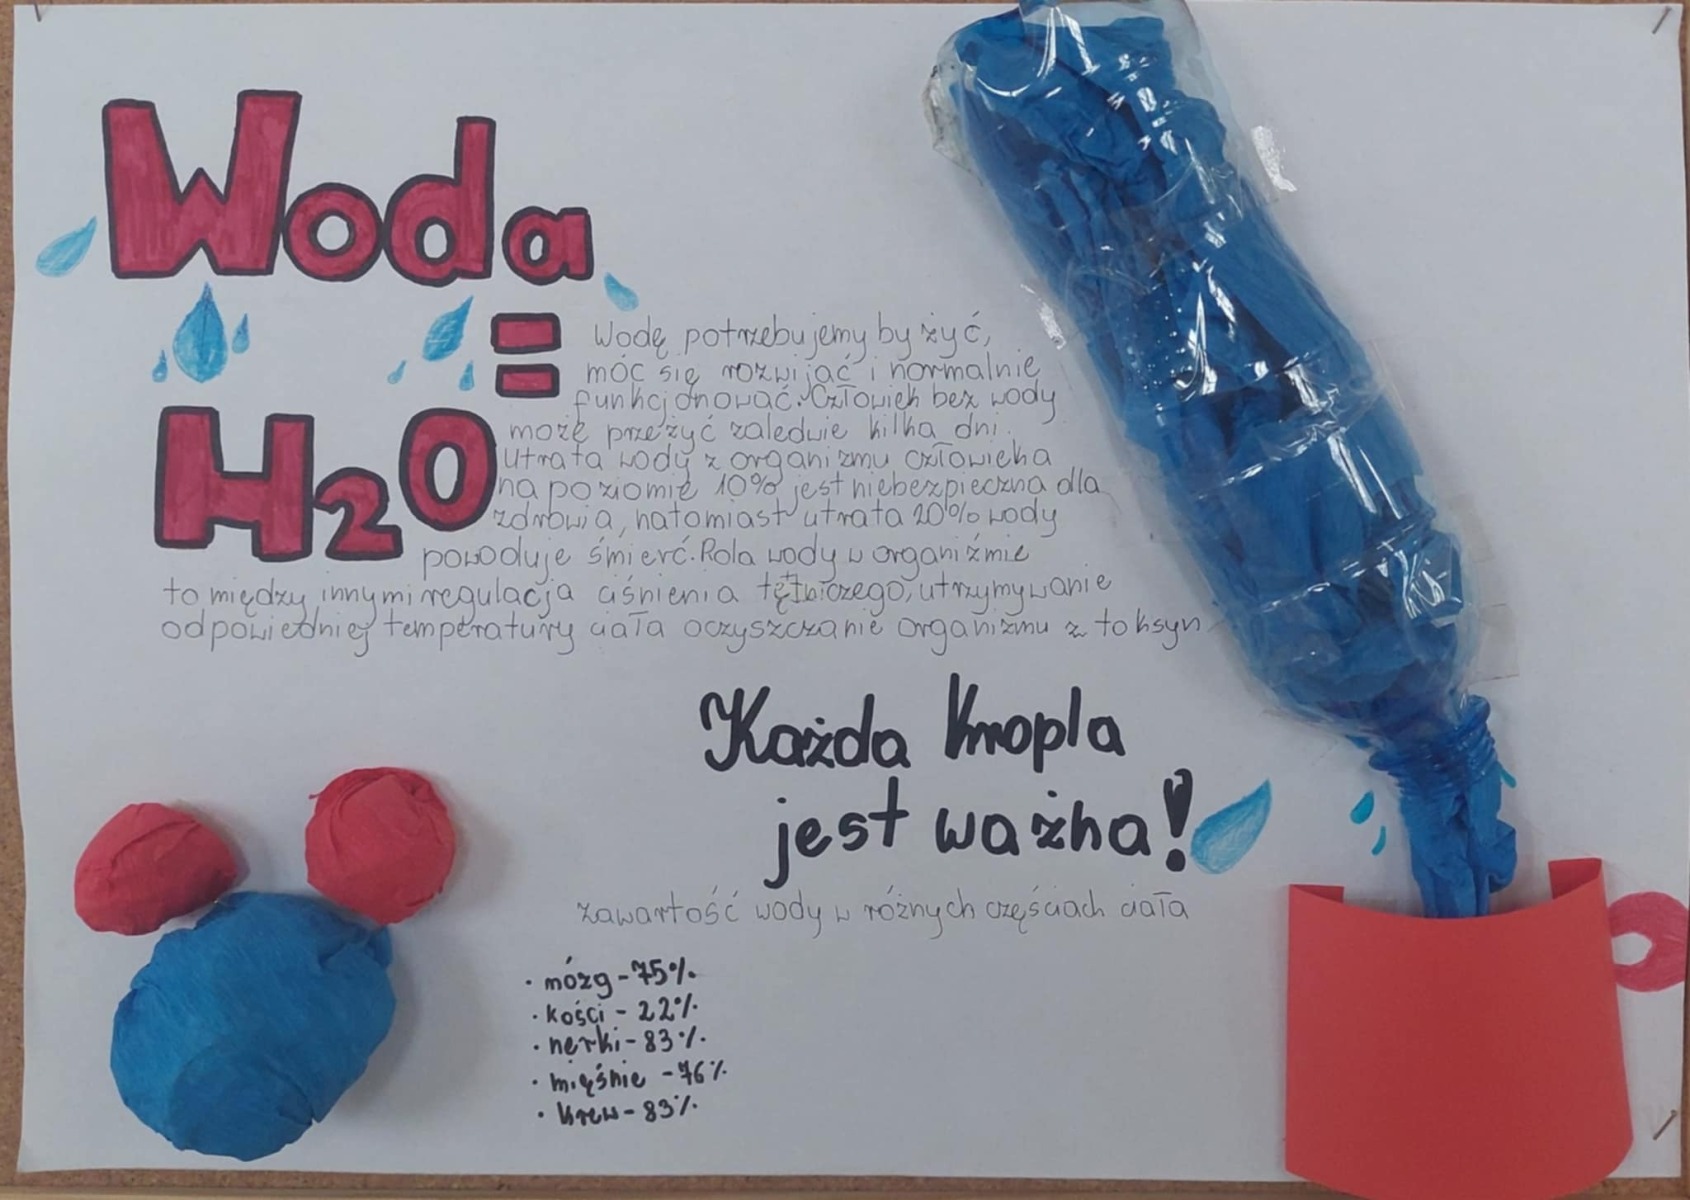 Woda
=
H2O
Wodę potrzebujemy by żyć,
móc się rozwijać i normalnie
funkcjonować. Człowiek bez wody
może przeżyć zaledwie kilka dni.
Utrata wody z organizmu człowieka
na poziomie 10% jest niebezpieczna dla
zdrowia, natomiast utrata 20% wody
powoduje śmierć. Rola wody w organiźmie
to między innymi regulacja ciśnienia tętniczego, utrzymywanie
odpowiedniej temperatury ciała oczyszczanie organizmu z toksyn
Każda kropla
jest ważna!
zawartość wody w różnych częściach ciała
· mózg - 75%
· kości - 22%
· nerki - 83%
· mięśnie - 76%
· krew - 83%